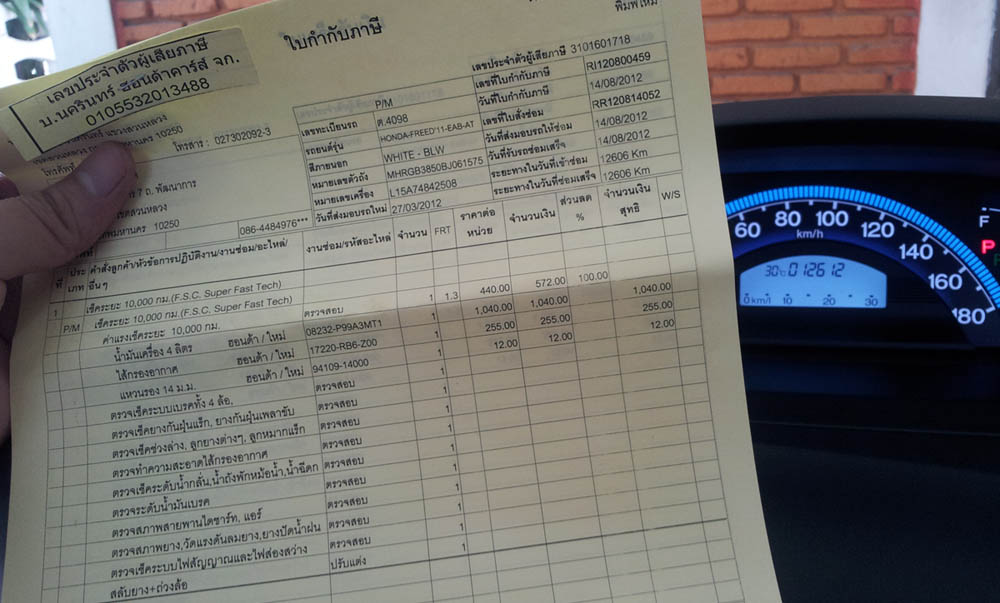 พิมพ์ใหม่
ใบกำกับภาษี
เลขประจำตัวผู้เสียภาษี
บ.นครินทร์ ฮอนด้าคาร์ส์ จก.
0105532013488
แขวงสวนหลวง
10250
โทรสาร : 027302092-3
7 ถ. พัฒนาการ
10250
086-4484976***
เลขประจำตัวผู้เสียภาษี 3101601718
เลขที่ใบกำกับภาษี RI120800459
วันที่ใบกำกับภาษี 14/08/2012
เลขที่ใบสั่งซ่อม RR120814052
วันที่ส่งมอบรถให้ซ่อม 14/08/2012
วันที่รับรถซ่อมเสร็จ 14/08/2012
ระยะทางในวันที่เข้าซ่อม 12606 Km
ระยะทางในวันที่ซ่อมเสร็จ 12606 Km
P/M
เลขทะเบียนรถ ต.4098
รถยนต์รุ่น HONDA-FREED'11-EAB-AT
สีภายนอก WHITE - BLW
หมายเลขตัวถัง MHRGB3850BJ061575
หมายเลขเครื่อง L15A74842508
วันที่ส่งมอบรถใหม่ 27/03/2012
ที่ ประเภท คำสั่งลูกค้า/หัวข้อการปฏิบัติงาน/งานซ่อม/อะไหล่/อื่นๆ งานซ่อม/รหัสอะไหล่ จำนวน FRT ราคาต่อหน่วย จำนวนเงิน ส่วนลด % จำนวนเงินสุทธิ W/S
1 เช็คระยะ 10,000 กม.(F.S.C. Super Fast Tech)
P/M เช็คระยะ 10,000 กม.(F.S.C. Super Fast Tech)
ค่าแรงเช็คระยะ 10,000 กม. ตรวจสอบ 1 1.3 440.00 572.00 100.00
น้ำมันเครื่อง 4 ลิตร ฮอนด้า / ใหม่ 08232-P99A3MT1 1 1,040.00 1,040.00 1,040.00
ไส้กรองอากาศ ฮอนด้า / ใหม่ 17220-RB6-Z00 1 255.00 255.00 255.00
แหวนรอง 14 ม.ม. ฮอนด้า / ใหม่ 94109-14000 1 12.00 12.00 12.00
ตรวจเช็คระบบเบรคทั้ง 4 ล้อ, ตรวจสอบ 1
ตรวจเช็คยางกันฝุ่นแร็ก, ยางกันฝุ่นเพลาขับ ตรวจสอบ 1
ตรวจเช็คช่วงล่าง, ลูกยางต่างๆ, ลูกหมากแร็ก ตรวจสอบ 1
ตรวจทำความสะอาดไส้กรองอากาศ ตรวจสอบ 1
ตรวจเช็คระดับน้ำกลั่น,น้ำถังพักหม้อน้ำ,น้ำฉีดก ตรวจสอบ 1
ตรวจระดับน้ำมันเบรค ตรวจสอบ 1
ตรวจสภาพสายพานไดชาร์ท, แอร์ ตรวจสอบ 1
ตรวจสภาพยาง,วัดแรงดันลมยาง,ยางปัดน้ำฝน ตรวจสอบ 1
ตรวจเช็คระบบไฟสัญญาณและไฟส่องสว่าง ตรวจสอบ 1
สลับยาง+ถ่วงล้อ ปรับแต่ง 1
60 80 100 120 140 160 180
km/h
30℃ 012612
0km/l 10 20 30
F
P
R